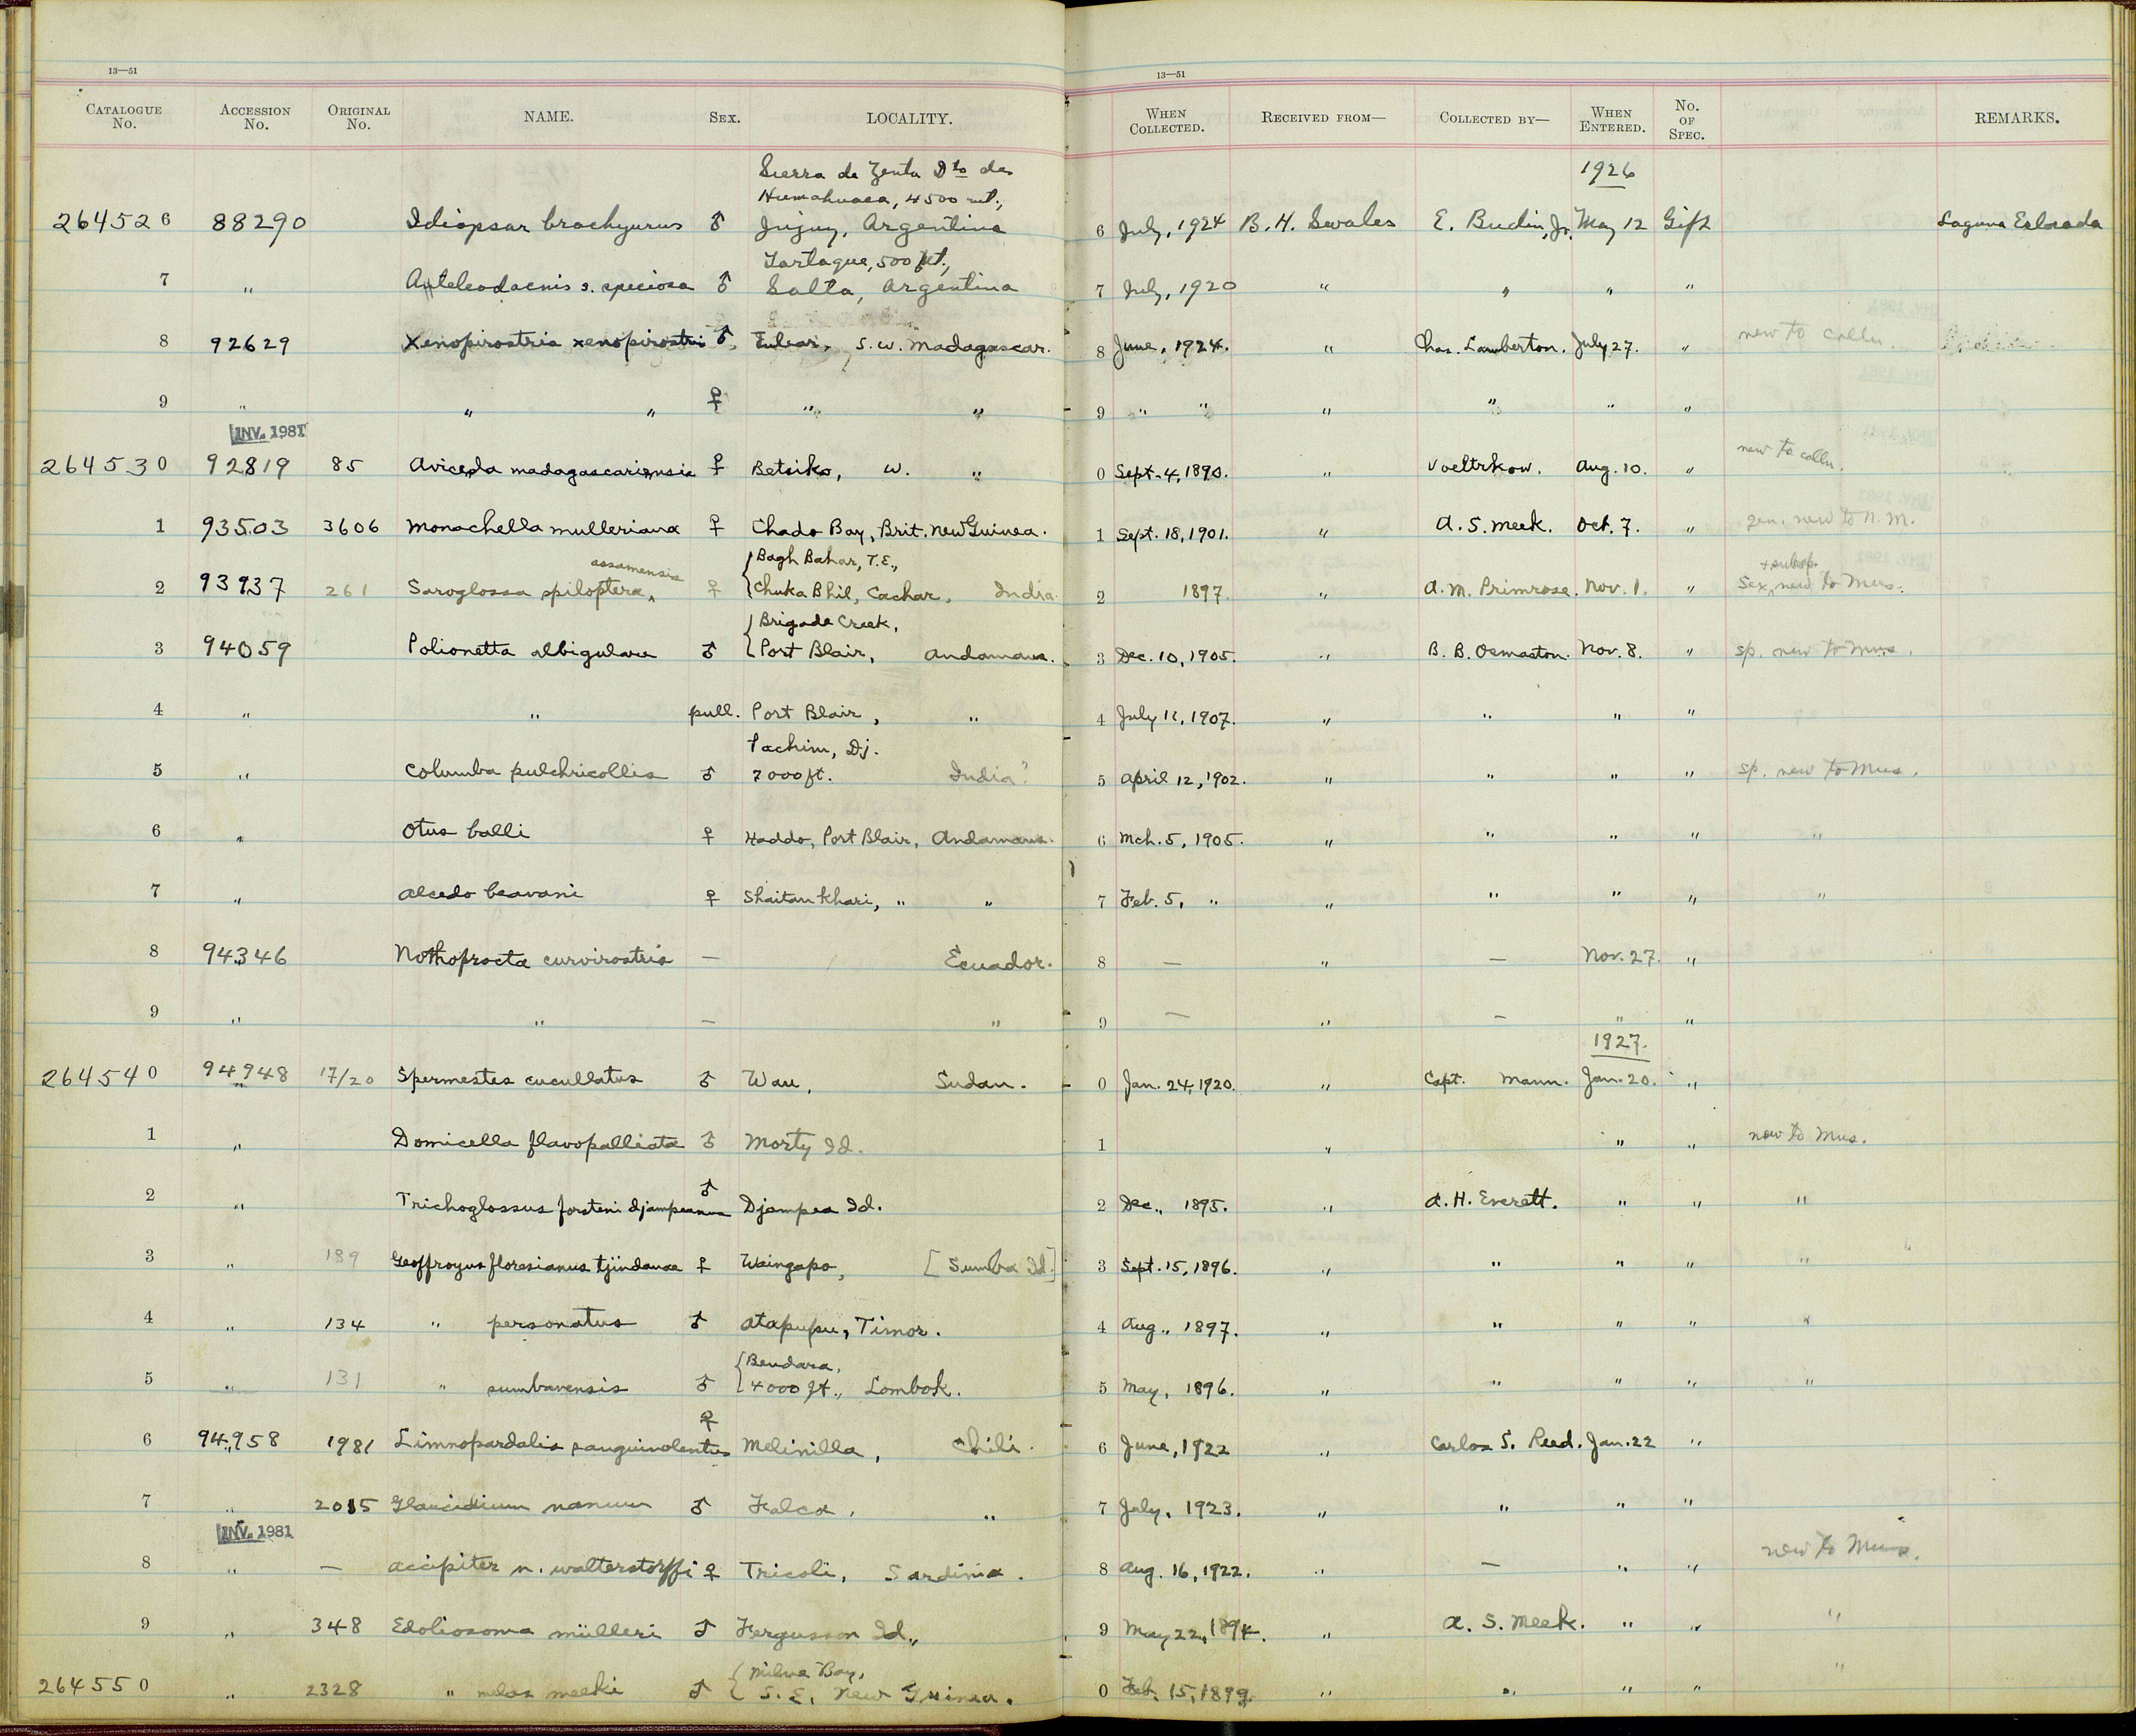 13—51
CATALOGUE No. ACCESSION No. ORIGINAL No. NAME. SEX. LOCALITY.
13—51
WHEN COLLECTED. RECEIVED FROM— COLLECTED BY— WHEN ENTERED. No. OF SPEC. REMARKS.
1926
Sierra de Zenta Dto de
Humahuaca, 4500 mt.,
264526 88290 Idiopsar brachyurus ♂ Jujuy, Argentina 6 July, 1924 B. H. Swales E. Budin, Jr. May 12 Gift
Tartague, 500 mt.,
7 " Ateleodacnis s. speciosa ♂ Salta, Argentina 7 July, 1920 " " " "
8 92629 Xenopirostris xenopirostris ♂ Tulear, S.W. Madagascar. 8 June, 1924. " Chas. Lamberton. July 27. " new to colln.
9 " " " ♀ " " 9 " " " " " "
INV. 1981
264530 92819 85 Aviceda madagascariensis ♀ Betsiko, W. " 0 Sept. 4, 1890. " Voeltzkow. Aug. 10. " new to colln.
1 93503 3606 Monachella mulleriana ♀ Chado Bay, Brit. New Guinea. 1 Sept. 18, 1901. " A. S. Meek. Oct. 7. " gen. new to N. M.
assamensis Bagh Bahar, T.E., + subsp.
2 93937 261 Saroglossa spiloptera ♀ Chuka Bhil, Cachar, India. 2 1897. " A. M. Primrose. Nov. 1. " Sex, new to Mus.
Brigade Creek,
3 94059 Polionetta albigularis ♂ Port Blair, Andamans. 3 Dec. 10, 1905. " B. B. Osmaston. Nov. 8. " sp. new to Mus.
4 " " pull. Port Blair, " 4 July 12, 1907. " " " "
Pachim, Dj.
5 " Columba pulchricollis ♂ 7000 ft. India? 5 April 12, 1902. " " " " sp. new to Mus.
6 " Otus balli ♀ Haddo, Port Blair, Andamans. 6 Mch. 5, 1905. " " " " "
7 " Alcedo beavani ♀ Shaitan Khari, " " 7 Feb. 5, " " " " " "
8 94346 Nothoprocta curvirostris — Ecuador. 8 — " — Nov. 27. "
9 " " — " 9 — " — " "
1927.
264540 94948 17/20 Spermestes cucullatus ♂ Wau, Sudan. 0 Jan. 24, 1920. " Capt. Mann. Jan. 20. "
1 " Domicella flavopalliata ♂ Morty Id. 1 " " " new to Mus.
2 " Trichoglossus forsteni djampeanus ♂ Djampea Id. 2 Dec., 1895. " A. H. Everett. " " "
3 " 189 Geoffroyus floresianus tjindanae ♀ Waingapo, [Sumba Id.] 3 Sept. 15, 1896. " " " " "
4 " 134 " personatus ♂ Atapupu, Timor. 4 Aug., 1897. " " " " "
Bendara,
5 " 131 " sumbavensis ♂ 4000 ft., Lombok. 5 May, 1896. " " " " "
6 94958 1981 Limnopardalis sanguinolentus ♀ Melinilla, Chili. 6 June, 1922 " Carlos S. Reed. Jan. 22 "
7 " 2015 Glaucidium nanum ♂ Talca, " 7 July, 1923. " " " "
INV. 1981
8 " — Accipiter n. wolterstorffi ♀ Tricoli, Sardinia. 8 Aug. 16, 1922. " — " " new to Mus.
9 " 348 Edoliosoma mülleri ♂ Fergusson Id., 9 May 22, 1894. " A. S. Meek. " " "
Milne Bay,
264550 " 2328 " melas meeki ♂ S. E. New Guinea. 0 Feb. 15, 1899. " " " " "